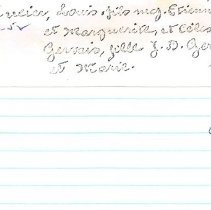 Louis fils maj. Etienne
et Marguerite, et Céles
Gervais, fille J. B. Ger
et Marie.